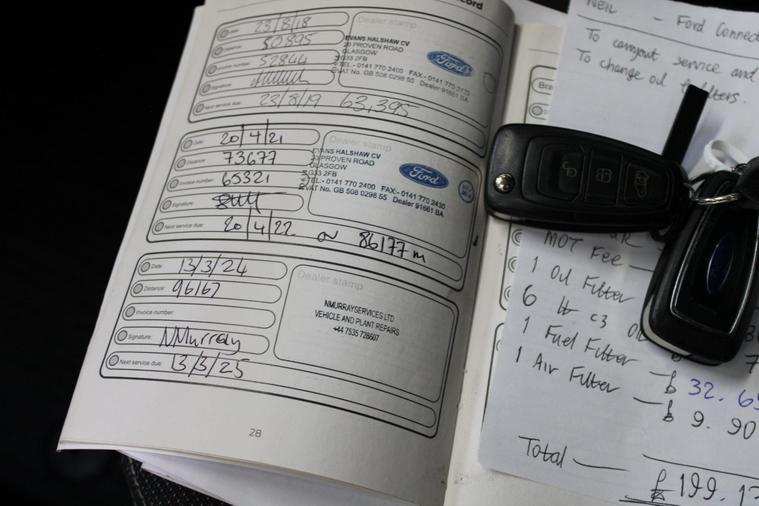 Record
Date: 23/8/18
Distance: 50895
Invoice number: 52844
Signature:
Next service due: 23/8/19 63,395
Dealer stamp
EVANS HALSHAW CV
23 PROVEN ROAD
GLASGOW
G33 2FB
TEL:- 0141 770 2400 FAX:- 0141 770 2430
VAT No. GB 508 0298 55 Dealer 91661 BA
Ford
Date: 20/4/21
Distance: 73677
Invoice number: 65321
Signature:
Next service due: 20/4/22 or 86177 m
Dealer stamp
EVANS HALSHAW CV
23 PROVEN ROAD
GLASGOW
G33 2FB
TEL:- 0141 770 2400 FAX:- 0141 770 2430
VAT No. GB 508 0298 55 Dealer 91661 BA
Ford
Date: 13/3/24
Distance: 96167
Invoice number:
Signature: NMurray
Next service due: 13/3/25
Dealer stamp
NMURRAYSERVICES LTD
VEHICLE AND PLANT REPAIRS
+44 7535 728607
28
NEIL - Ford Connect
To carryout service and
To change oil filters.
MOT Fee —
1 Oil Filter
6 ltr c3 Oil
1 Fuel Filter —
1 Air Filter — £ 32.65
£ 9.90
Total — £199.17
Ford